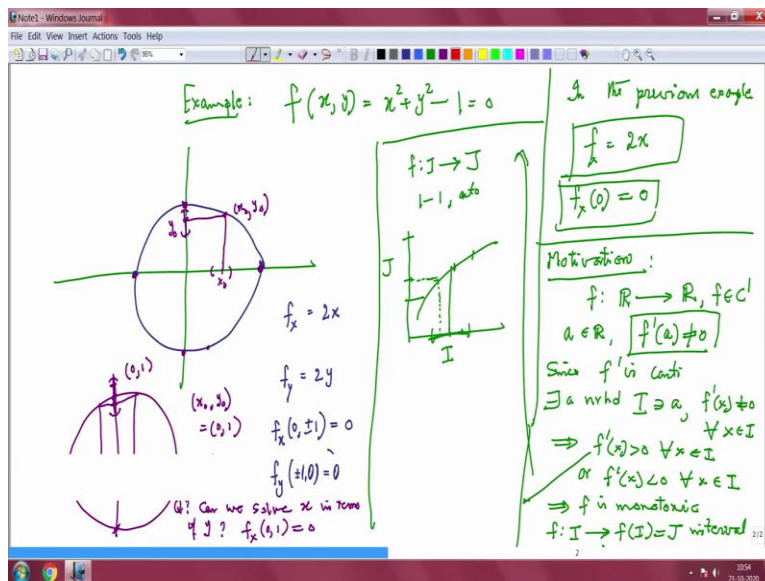 Note1 - Windows Journal
File Edit View Insert Actions Tools Help
Example: f(x, y) = x² + y² - 1 = 0
y₀
(x₀, y₀)
x₀
f_x = 2x
f_y = 2y
f_x(0, ±1) = 0
f_y(±1, 0) = 0
(0, 1)
(x₀, y₀)
= (0, 1)
Q? Can we solve x in terms
of y? f_x(0, 1) = 0
f: J → J
1-1, onto
J
I
In the previous example
f_x = 2x
f_x(0) = 0
Motivation:
f: ℝ → ℝ, f ∈ C'
a ∈ ℝ, f'(a) ≠ 0
Since f' is conti
∃ a nrhd I ∋ a, f'(x) ≠ 0
∀ x ∈ I
⇒ f'(x) > 0 ∀ x ∈ I
or f'(x) < 0 ∀ x ∈ I
⇒ f is monotonic
f: I → f(I) = J interval
2/2
2
10:54
21-10-2020